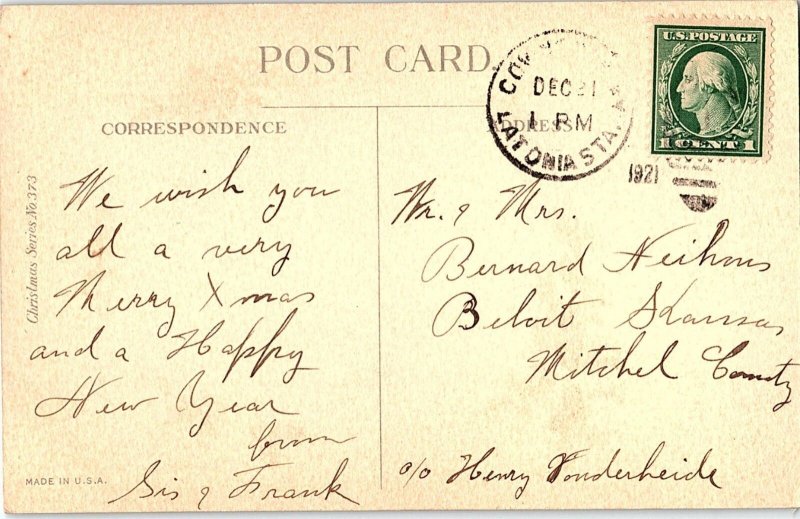 POST CARD
U.S.POSTAGE
1 CENTS 1
DEC 21
1 PM
LATONIA STA.
1921
CORRESPONDENCE
ADDRESS
Christmas Series No 373
We wish you
all a very
Merry Xmas
and a Happy
New Year
from
Sis & Frank
MADE IN U.S.A.
Mr. & Mrs.
Bernard
Beloit Kansas
Mitchel County
c/o Henry Vonderheide